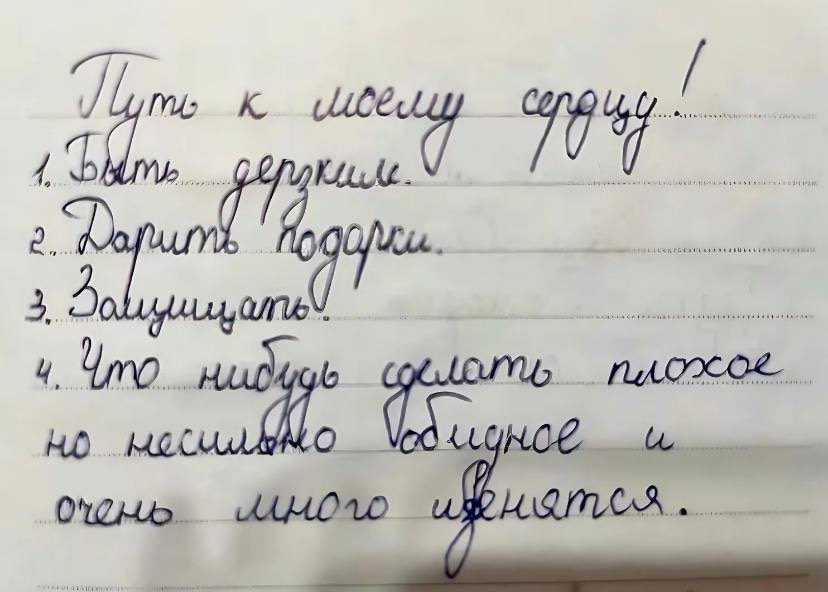 Путь к моему сердцу!
1. Быть дерзким.
2. Дарить подарки.
3. Защищать.
4. Что нибудь сделать плохое
но несильно обидное и
очень много извенятся.